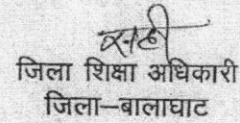 सही
जिला शिक्षा अधिकारी
जिला–बालाघाट